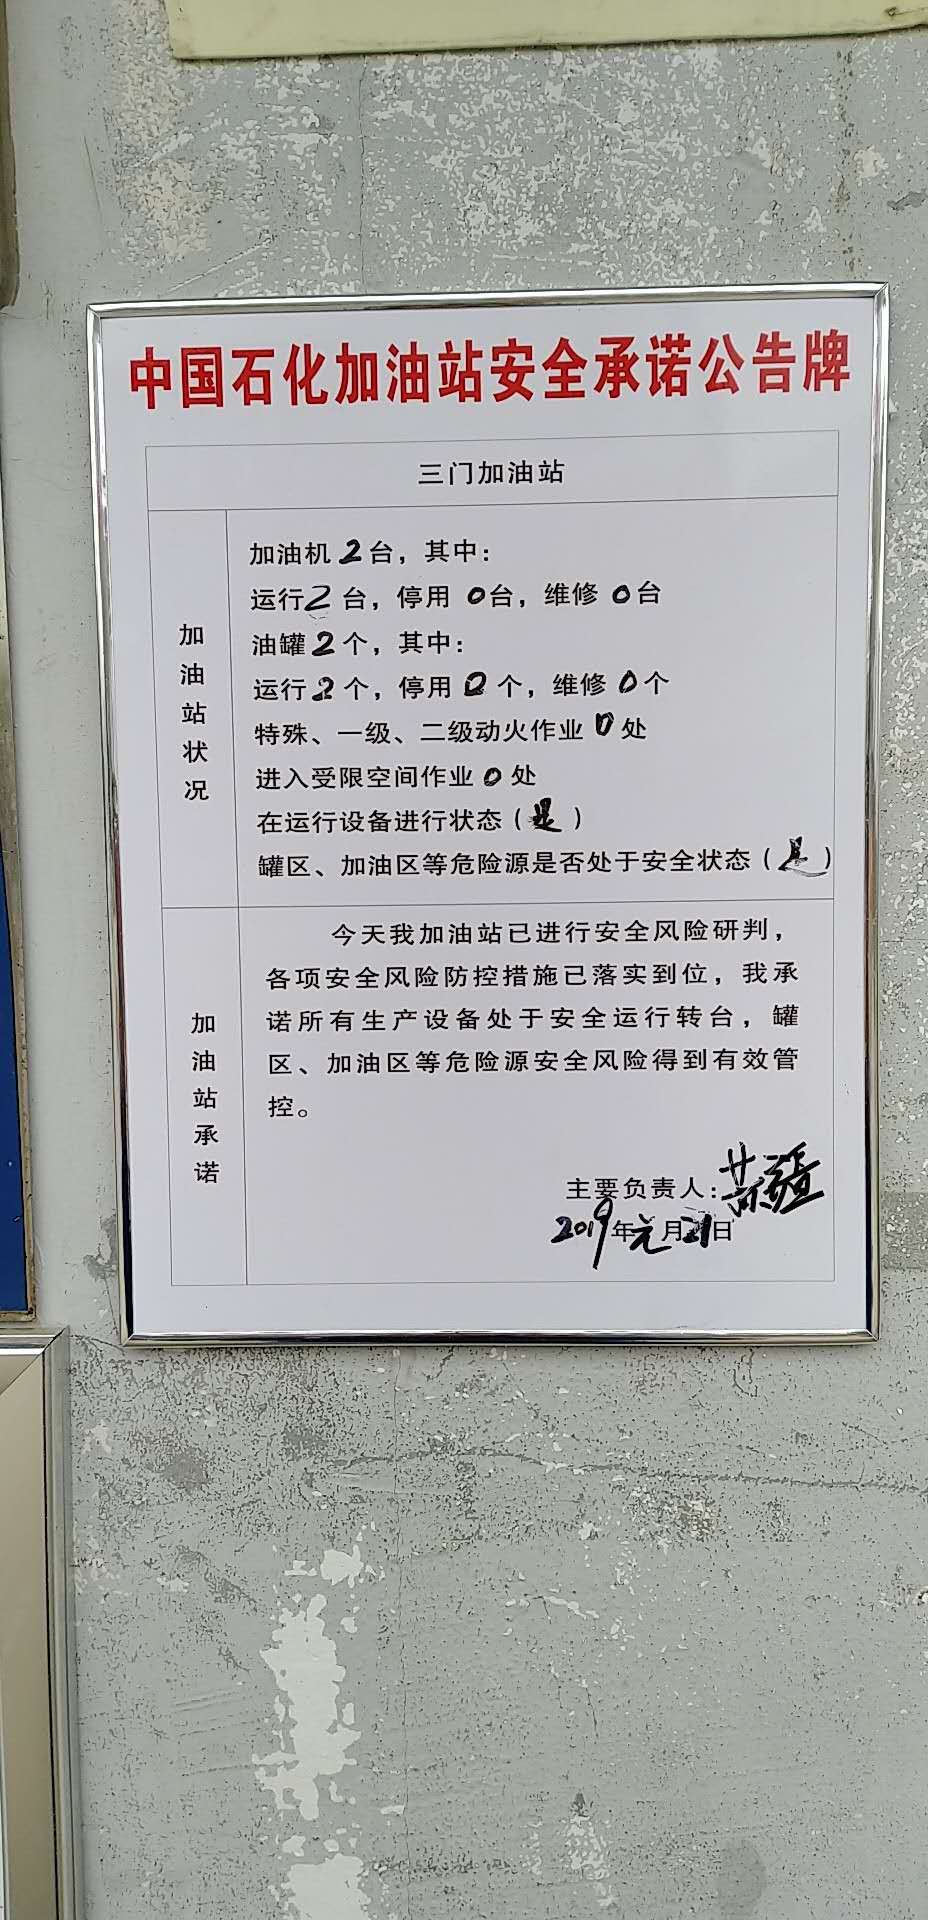 中国石化加油站安全承诺公告牌
三门加油站
加油站状况
加油机2台，其中：
运行2台，停用0台，维修0台
油罐2个，其中：
运行2个，停用0个，维修0个
特殊、一级、二级动火作业0处
进入受限空间作业0处
在运行设备进行状态（是）
罐区、加油区等危险源是否处于安全状态（是）
加油站承诺
今天我加油站已进行安全风险研判，
各项安全风险防控措施已落实到位，我承
诺所有生产设备处于安全运行转台，罐
区、加油区等危险源安全风险得到有效管
控。
主要负责人：
2019年元月21日